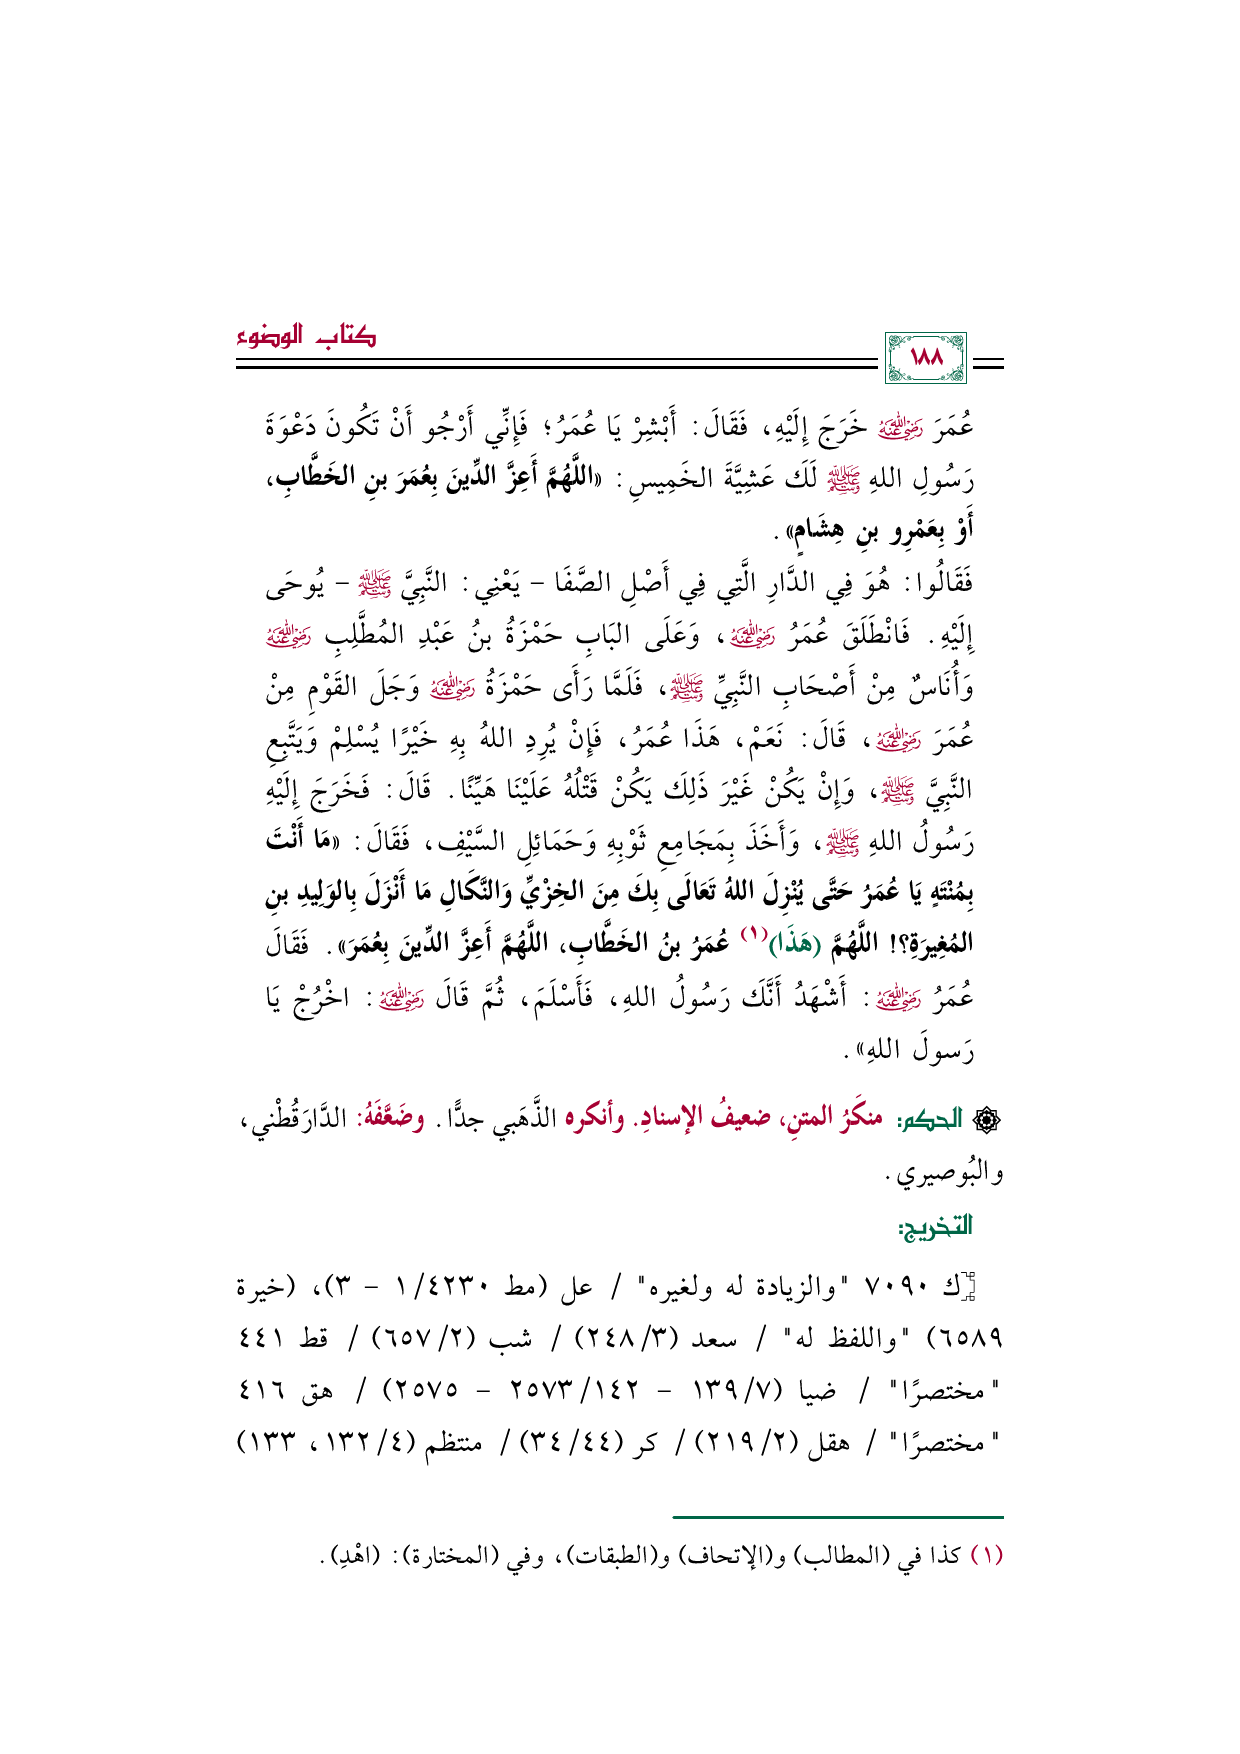 كتاب الوضوء
١٨٨
عُمَرَ ﵁ خَرَجَ إِلَيْهِ، فَقَالَ: أَبْشِرْ يَا عُمَرُ؛ فَإِنِّي أَرْجُو أَنْ تَكُونَ دَعْوَةَ
رَسُولِ اللهِ ﷺ لَكَ عَشِيَّةَ الخَمِيسِ: «اللَّهُمَّ أَعِزَّ الدِّينَ بِعُمَرَ بنِ الخَطَّابِ،
أَوْ بِعَمْرِو بنِ هِشَامٍ».
فَقَالُوا: هُوَ فِي الدَّارِ الَّتِي فِي أَصْلِ الصَّفَا - يَعْنِي: النَّبِيَّ ﷺ - يُوحَى
إِلَيْهِ. فَانْطَلَقَ عُمَرُ ﵁، وَعَلَى البَابِ حَمْزَةُ بنُ عَبْدِ المُطَّلِبِ ﵁
وَأُنَاسٌ مِنْ أَصْحَابِ النَّبِيِّ ﷺ، فَلَمَّا رَأَى حَمْزَةُ ﵁ وَجَلَ القَوْمِ مِنْ
عُمَرَ ﵁، قَالَ: نَعَمْ، هَذَا عُمَرُ، فَإِنْ يُرِدِ اللهُ بِهِ خَيْرًا يُسْلِمْ وَيَتَّبِعِ
النَّبِيَّ ﷺ، وَإِنْ يَكُنْ غَيْرَ ذَلِكَ يَكُنْ قَتْلُهُ عَلَيْنَا هَيِّنًا. قَالَ: فَخَرَجَ إِلَيْهِ
رَسُولُ اللهِ ﷺ، وَأَخَذَ بِمَجَامِعِ ثَوْبِهِ وَحَمَائِلِ السَّيْفِ، فَقَالَ: «مَا أَنْتَ
بِمُنْتَهٍ يَا عُمَرُ حَتَّى يُنْزِلَ اللهُ تَعَالَى بِكَ مِنَ الخِزْيِّ وَالنَّكَالِ مَا أَنْزَلَ بِالوَلِيدِ بنِ
المُغِيرَةِ؟! اللَّهُمَّ (هَذَا)(١) عُمَرُ بنُ الخَطَّابِ، اللَّهُمَّ أَعِزَّ الدِّينَ بِعُمَرَ». فَقَالَ
عُمَرُ ﵁: أَشْهَدُ أَنَّكَ رَسُولُ اللهِ، فَأَسْلَمَ، ثُمَّ قَالَ ﵁: اخْرُجْ يَا
رَسولَ اللهِ».
الحكم: منكَرُ المتنِ، ضعيفُ الإسنادِ. وأنكره الذَّهَبي جدًّا. وضَعَّفَهُ: الدَّارَقُطْني،
والبُوصيري.
التخريج:
[ك ٧٠٩٠ "والزيادة له ولغيره" / عل (مط ٤٢٣٠/١ - ٣)، (خيرة
٦٥٨٩) "واللفظ له" / سعد (٢٤٨/٣) / شب (٦٥٧/٢) / قط ٤٤١
"مختصرًا" / ضيا (١٣٩/٧ - ٢٥٧٣/١٤٢ - ٢٥٧٥) / هق ٤١٦
"مختصرًا" / هقل (٢١٩/٢) / كر (٣٤/٤٤) / منتظم (١٣٢/٤، ١٣٣)
(١) كذا في (المطالب) و(الإتحاف) و(الطبقات)، وفي (المختارة): (اهْدِ).